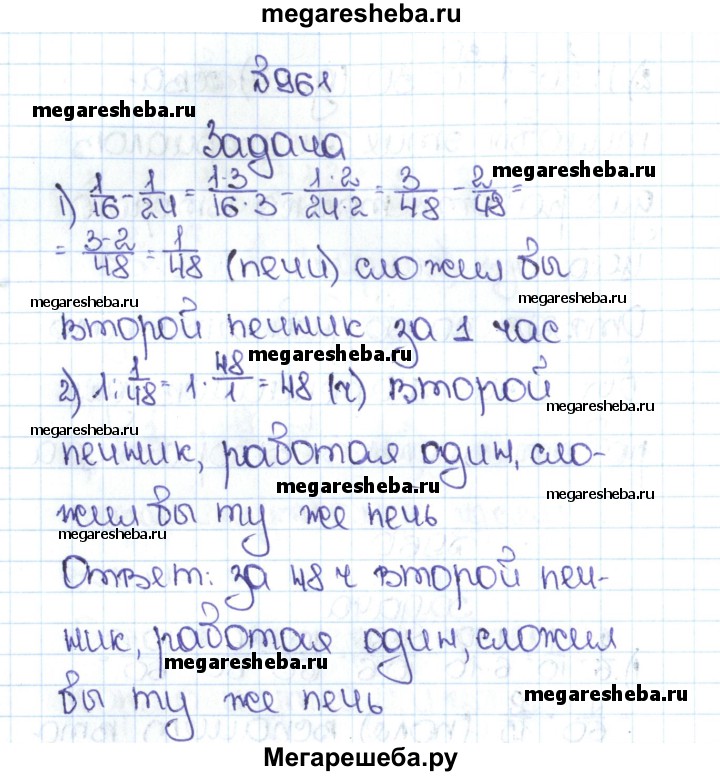 megaresheba.ru
№961
megaresheba.ru
Задача
megaresheba.ru
1) 1/16 - 1/24 = 1·3/16·3 - 1·2/24·2 = 3/48 - 2/48 =
= 3-2/48 = 1/48 (печи) сложил бы
megaresheba.ru megaresheba.ru
второй печник за 1 час
megaresheba.ru
2) 1 : 1/48 = 1 · 48/1 = 48 (ч) второй
megaresheba.ru megaresheba.ru
печник, работая один, сло-
megaresheba.ru megaresheba.ru
жил бы ту же печь
megaresheba.ru
Ответ: за 48 ч второй печ-
ник, работая один, сложил
megaresheba.ru
бы ту же печь
megaresheba.ru
Мегарешеба.ру